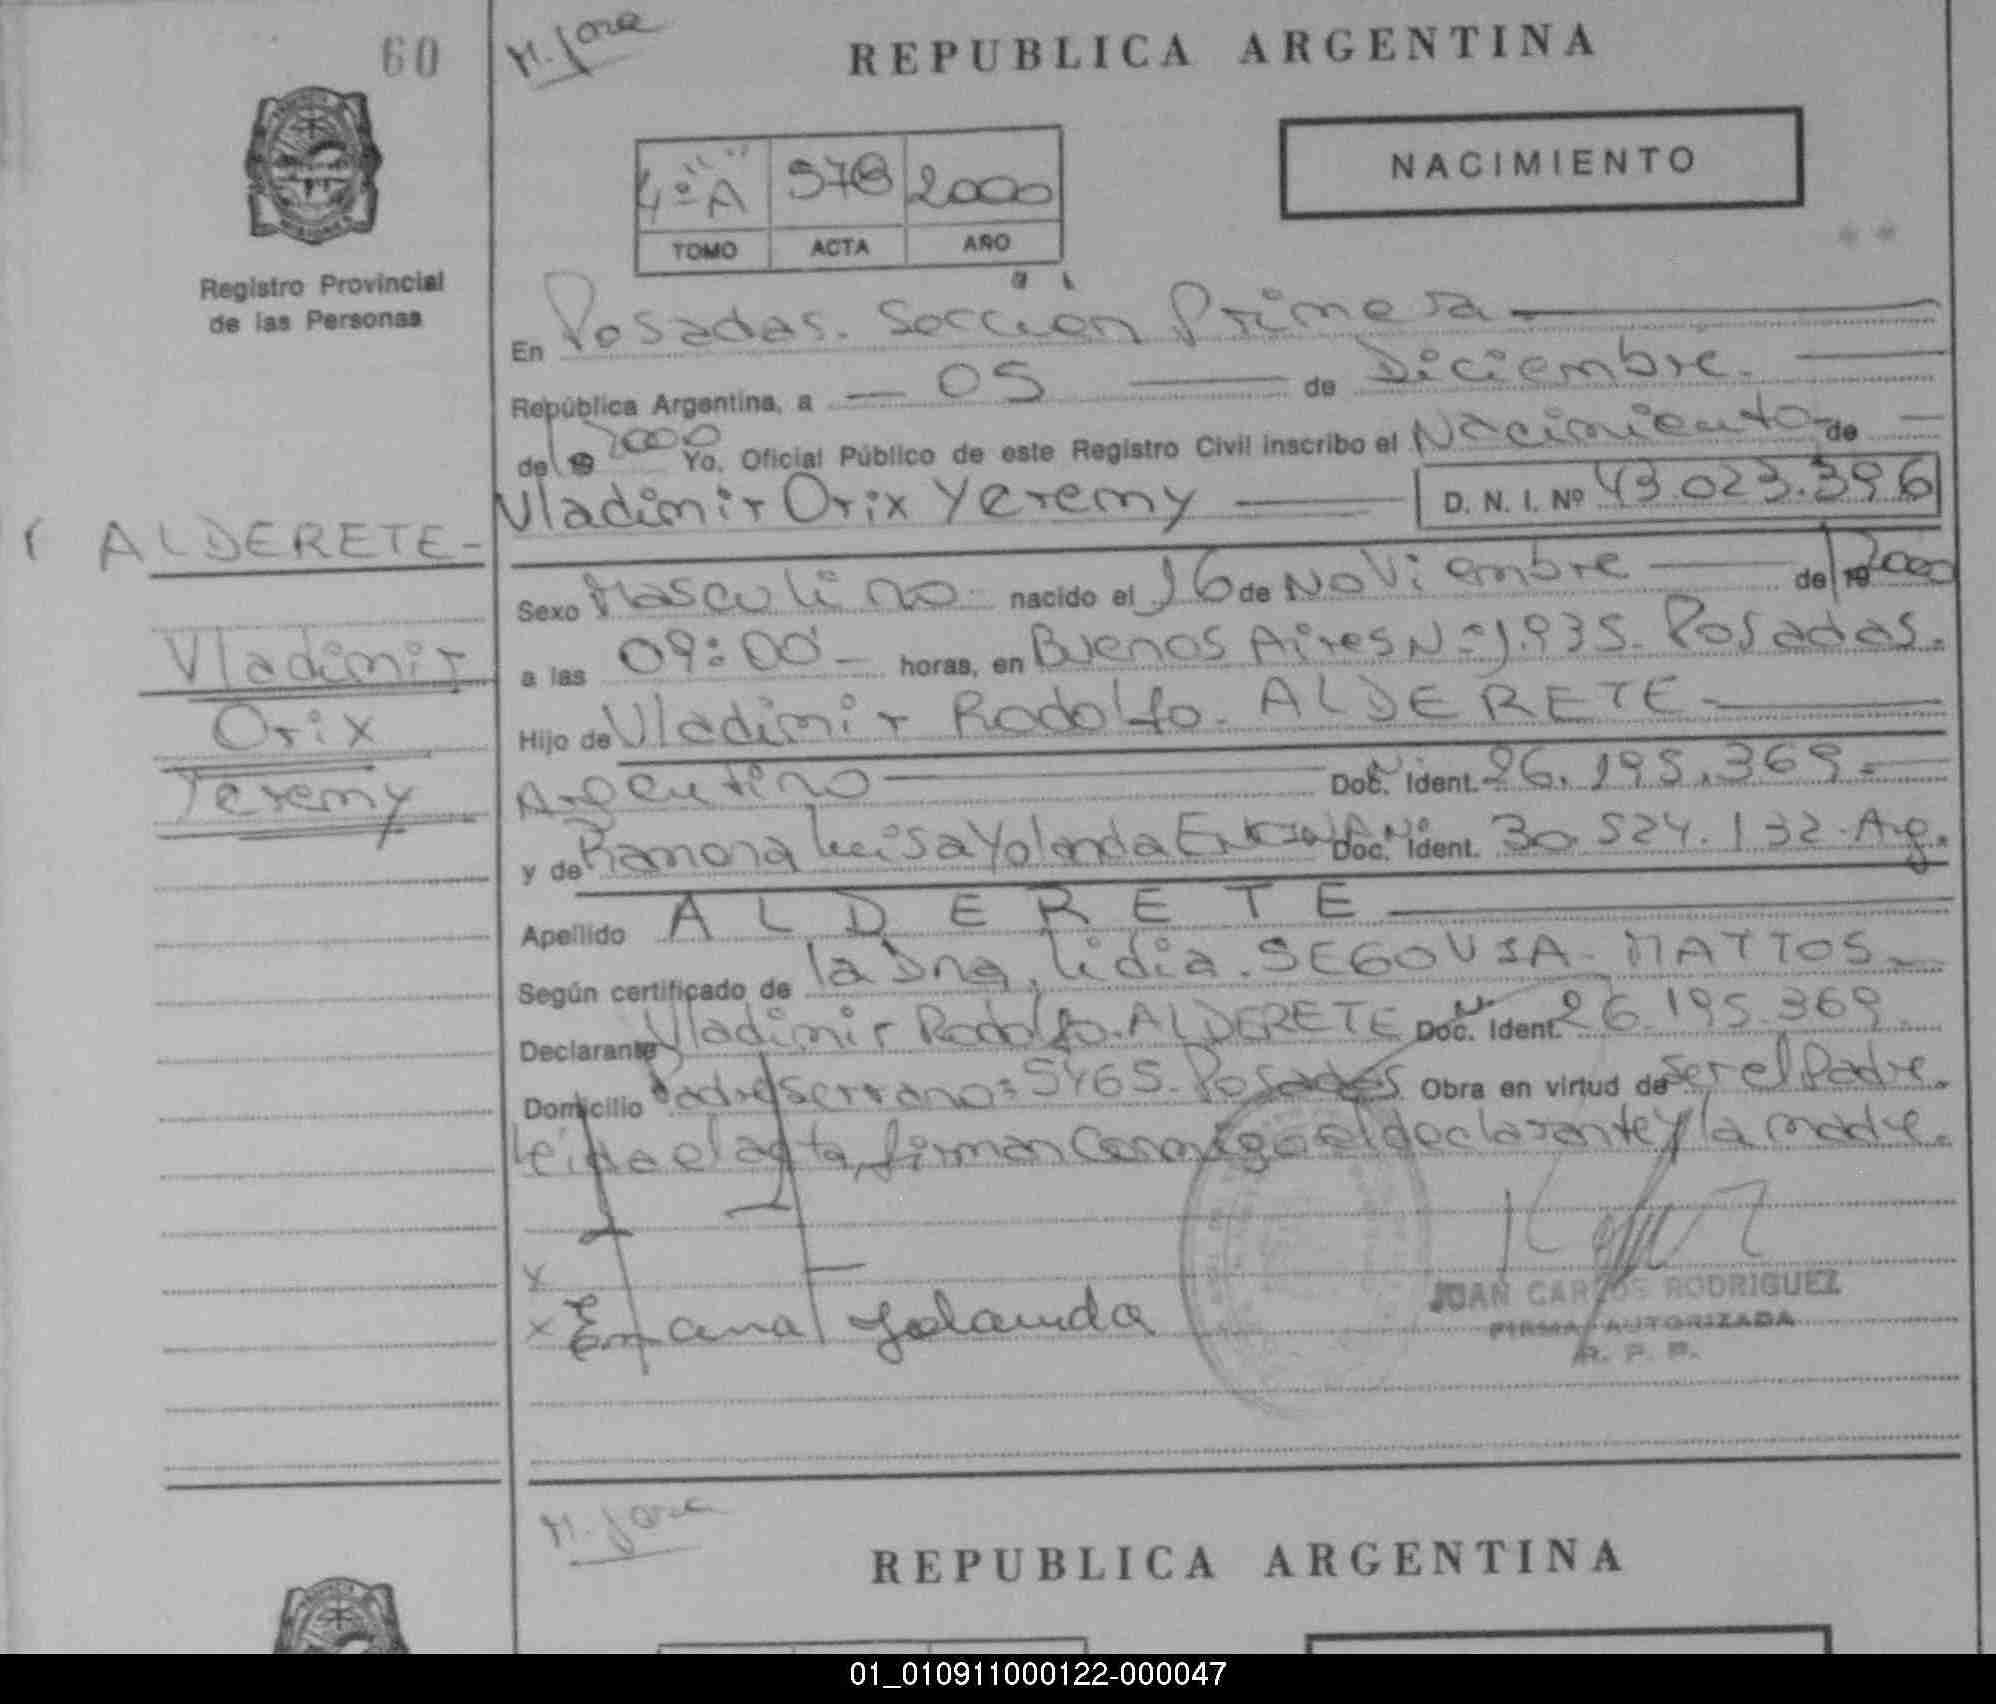 60
M. José
REPUBLICA ARGENTINA
NACIMIENTO
4º A 578 2000
TOMO ACTA AÑO
Registro Provincial
de las Personas
En Posadas. Sección Primera
República Argentina, a — 05 — de Diciembre.
de 19 2000 Yo, Oficial Público de este Registro Civil inscribo el Nacimiento de
Vladimir Orix Yeremy — D. N. I. Nº 43.023.396
ALDERETE-
Vladimir
Orix
Yeremy
Sexo Masculino. nacido el 16 de Noviembre — de 19 2000
a las 09:00 — horas, en Buenos Aires Nº 1.935. Posadas.
Hijo de Vladimir Rodolfo. ALDERETE
Argentino — Doc. Ident. 26.195.369.
y de Ramona Luisa Yolanda Doc. Ident. 30.524.132. Arg.
Apellido ALDERETE
Según certificado de la Dra. Lidia. SEGOVIA - MATTOS
Declarante Vladimir Rodolfo. ALDERETE Doc. Ident. 26.195.369.
Domicilio Padre Serrano: 5465. Posadas Obra en virtud de ser el Padre.
Leída el acta, firman conmigo el declarante y la madre.
x
x Yolanda
JUAN CARLOS RODRIGUEZ
FIRMA AUTORIZADA
R. P. P.
M. José
REPUBLICA ARGENTINA
01_010911000122-000047